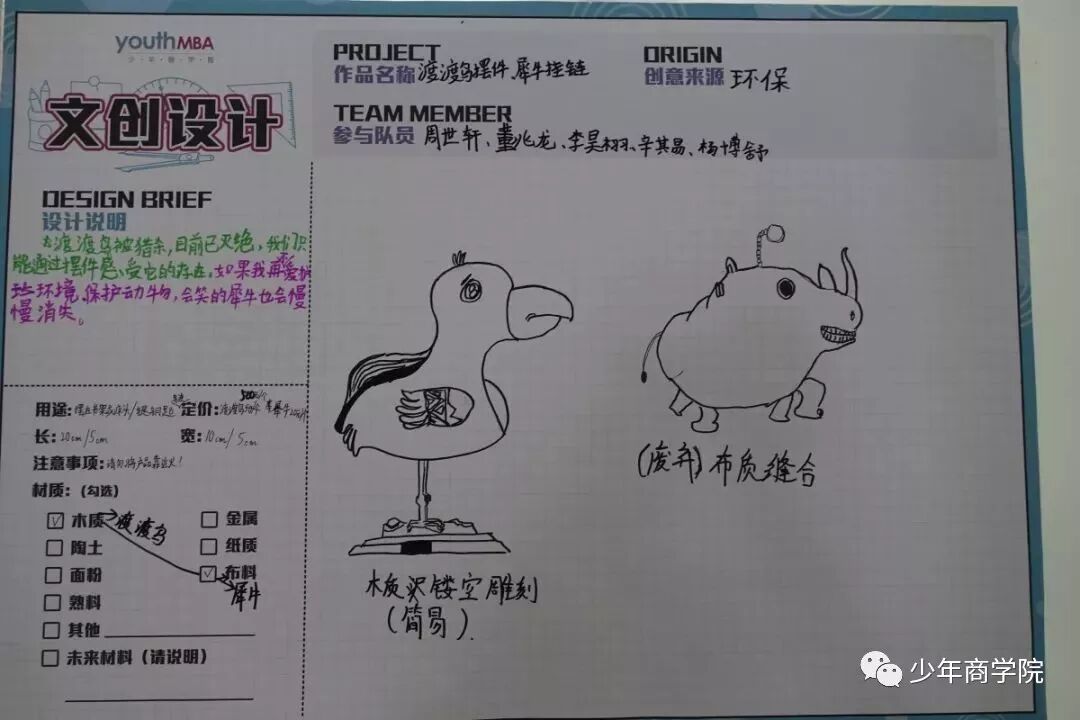 youth MBA
少·年·商·学·院
文创设计
PROJECT
作品名称 渡渡鸟摆件、犀牛挂链
ORIGIN
创意来源 环保
TEAM MEMBER
参与队员 周世轩、董兆龙、李昊栩、辛其易、杨博舒
DESIGN BRIEF
设计说明
渡渡鸟被猎杀,目前已灭绝,我们只
能通过摆件感受它的存在,如果我再不爱护
环境、保护动物,会笑的犀牛也会慢
慢消失。
用途:
定价:
长: 20cm/5cm
宽: 10cm/5cm
注意事项: 请勿将产品靠近火!
材质:(勾选)
木质 渡渡鸟
金属
陶土
纸质
面粉
布料
犀牛
熟料
其他
未来材料(请说明)
木质 镂空雕刻
(简易)
(废弃)布质缝合
少年商学院